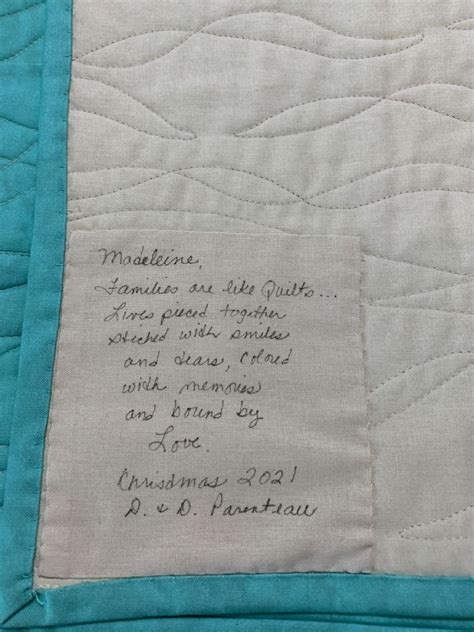 Madeleine,
Families are like Quilts...
Lives pieced together
stiched with smiles
and tears, colored
with memories
and bound by
Love.
Christmas 2021
D. & D. Parenteau